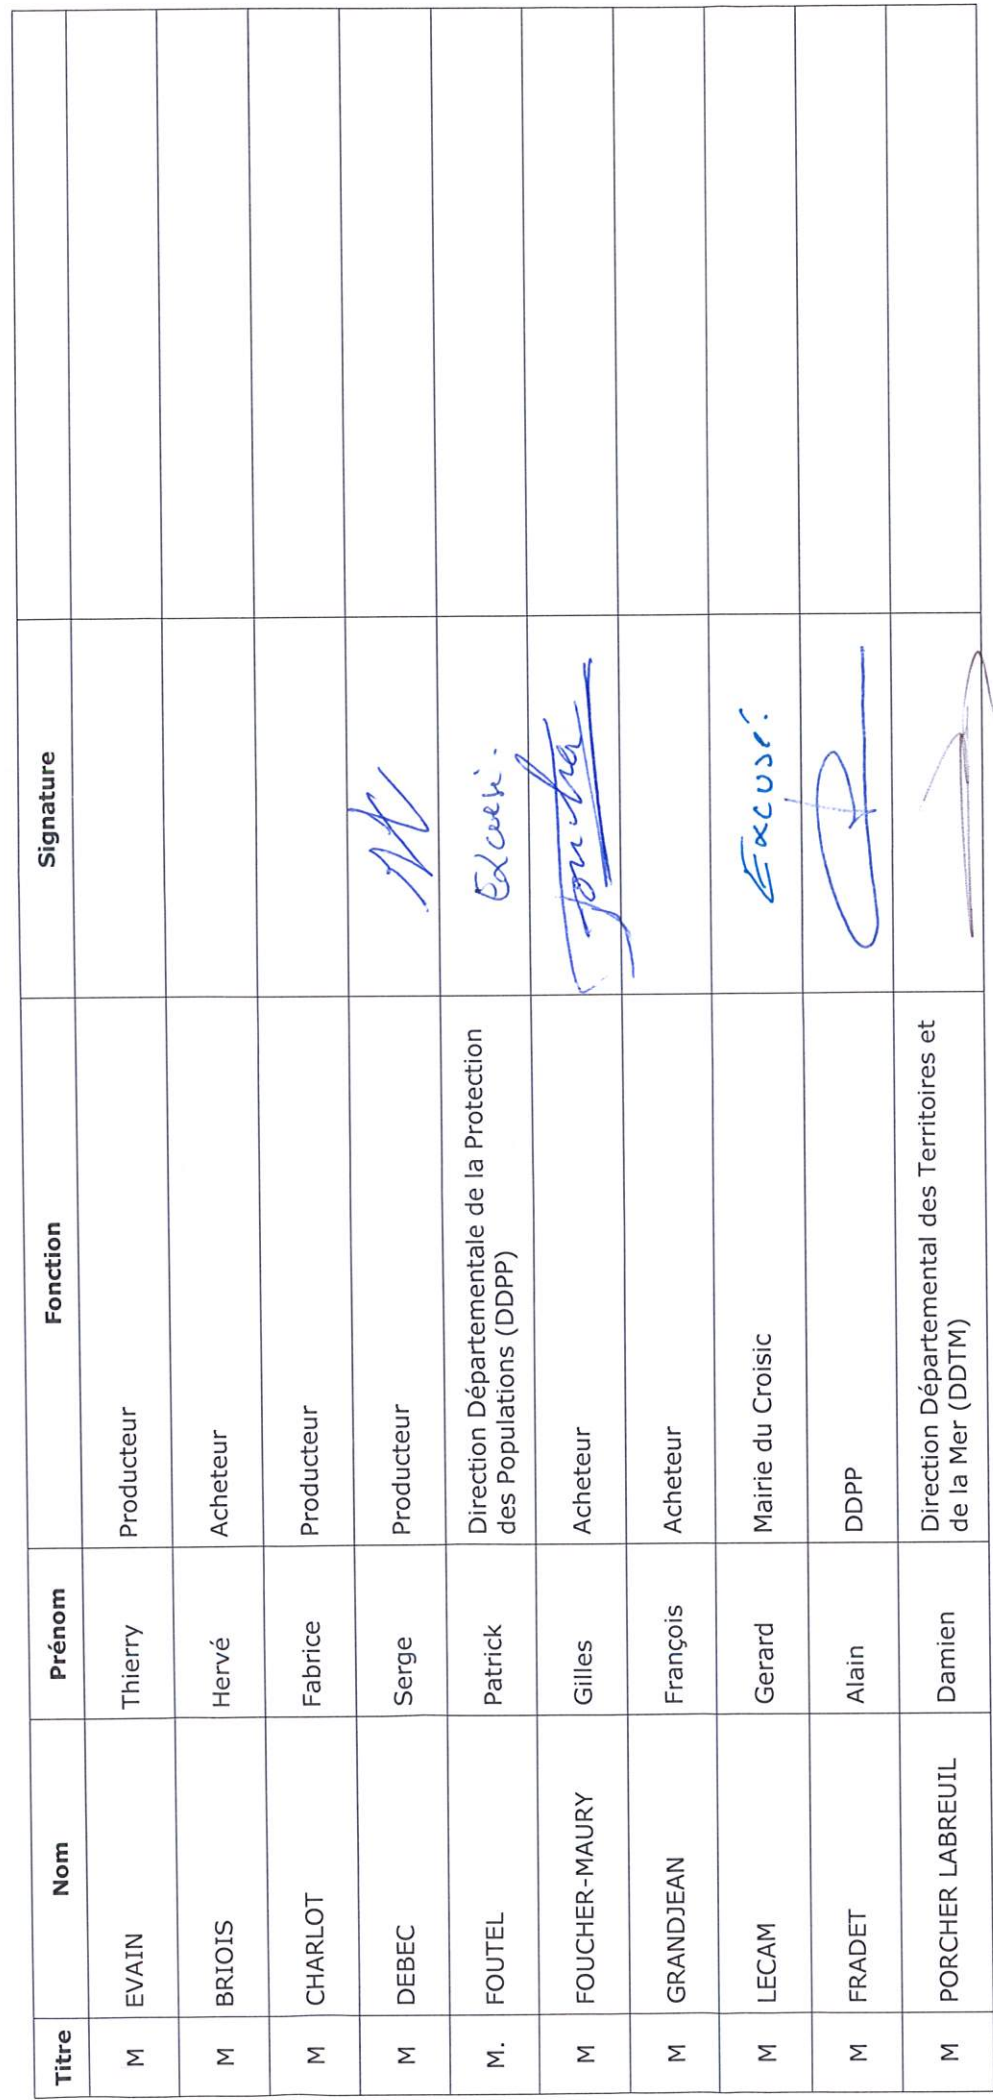 Titre Nom Prénom Fonction Signature
M EVAIN Thierry Producteur
M BRIOIS Hervé Acheteur
M CHARLOT Fabrice Producteur
M DEBEC Serge Producteur
M. FOUTEL Patrick Direction Départementale de la Protection
des Populations (DDPP) Excusé.
M FOUCHER-MAURY Gilles Acheteur Foucher
M GRANDJEAN François Acheteur
M LECAM Gerard Mairie du Croisic Excusé.
M FRADET Alain DDPP
M PORCHER LABREUIL Damien Direction Départemental des Territoires et
de la Mer (DDTM)